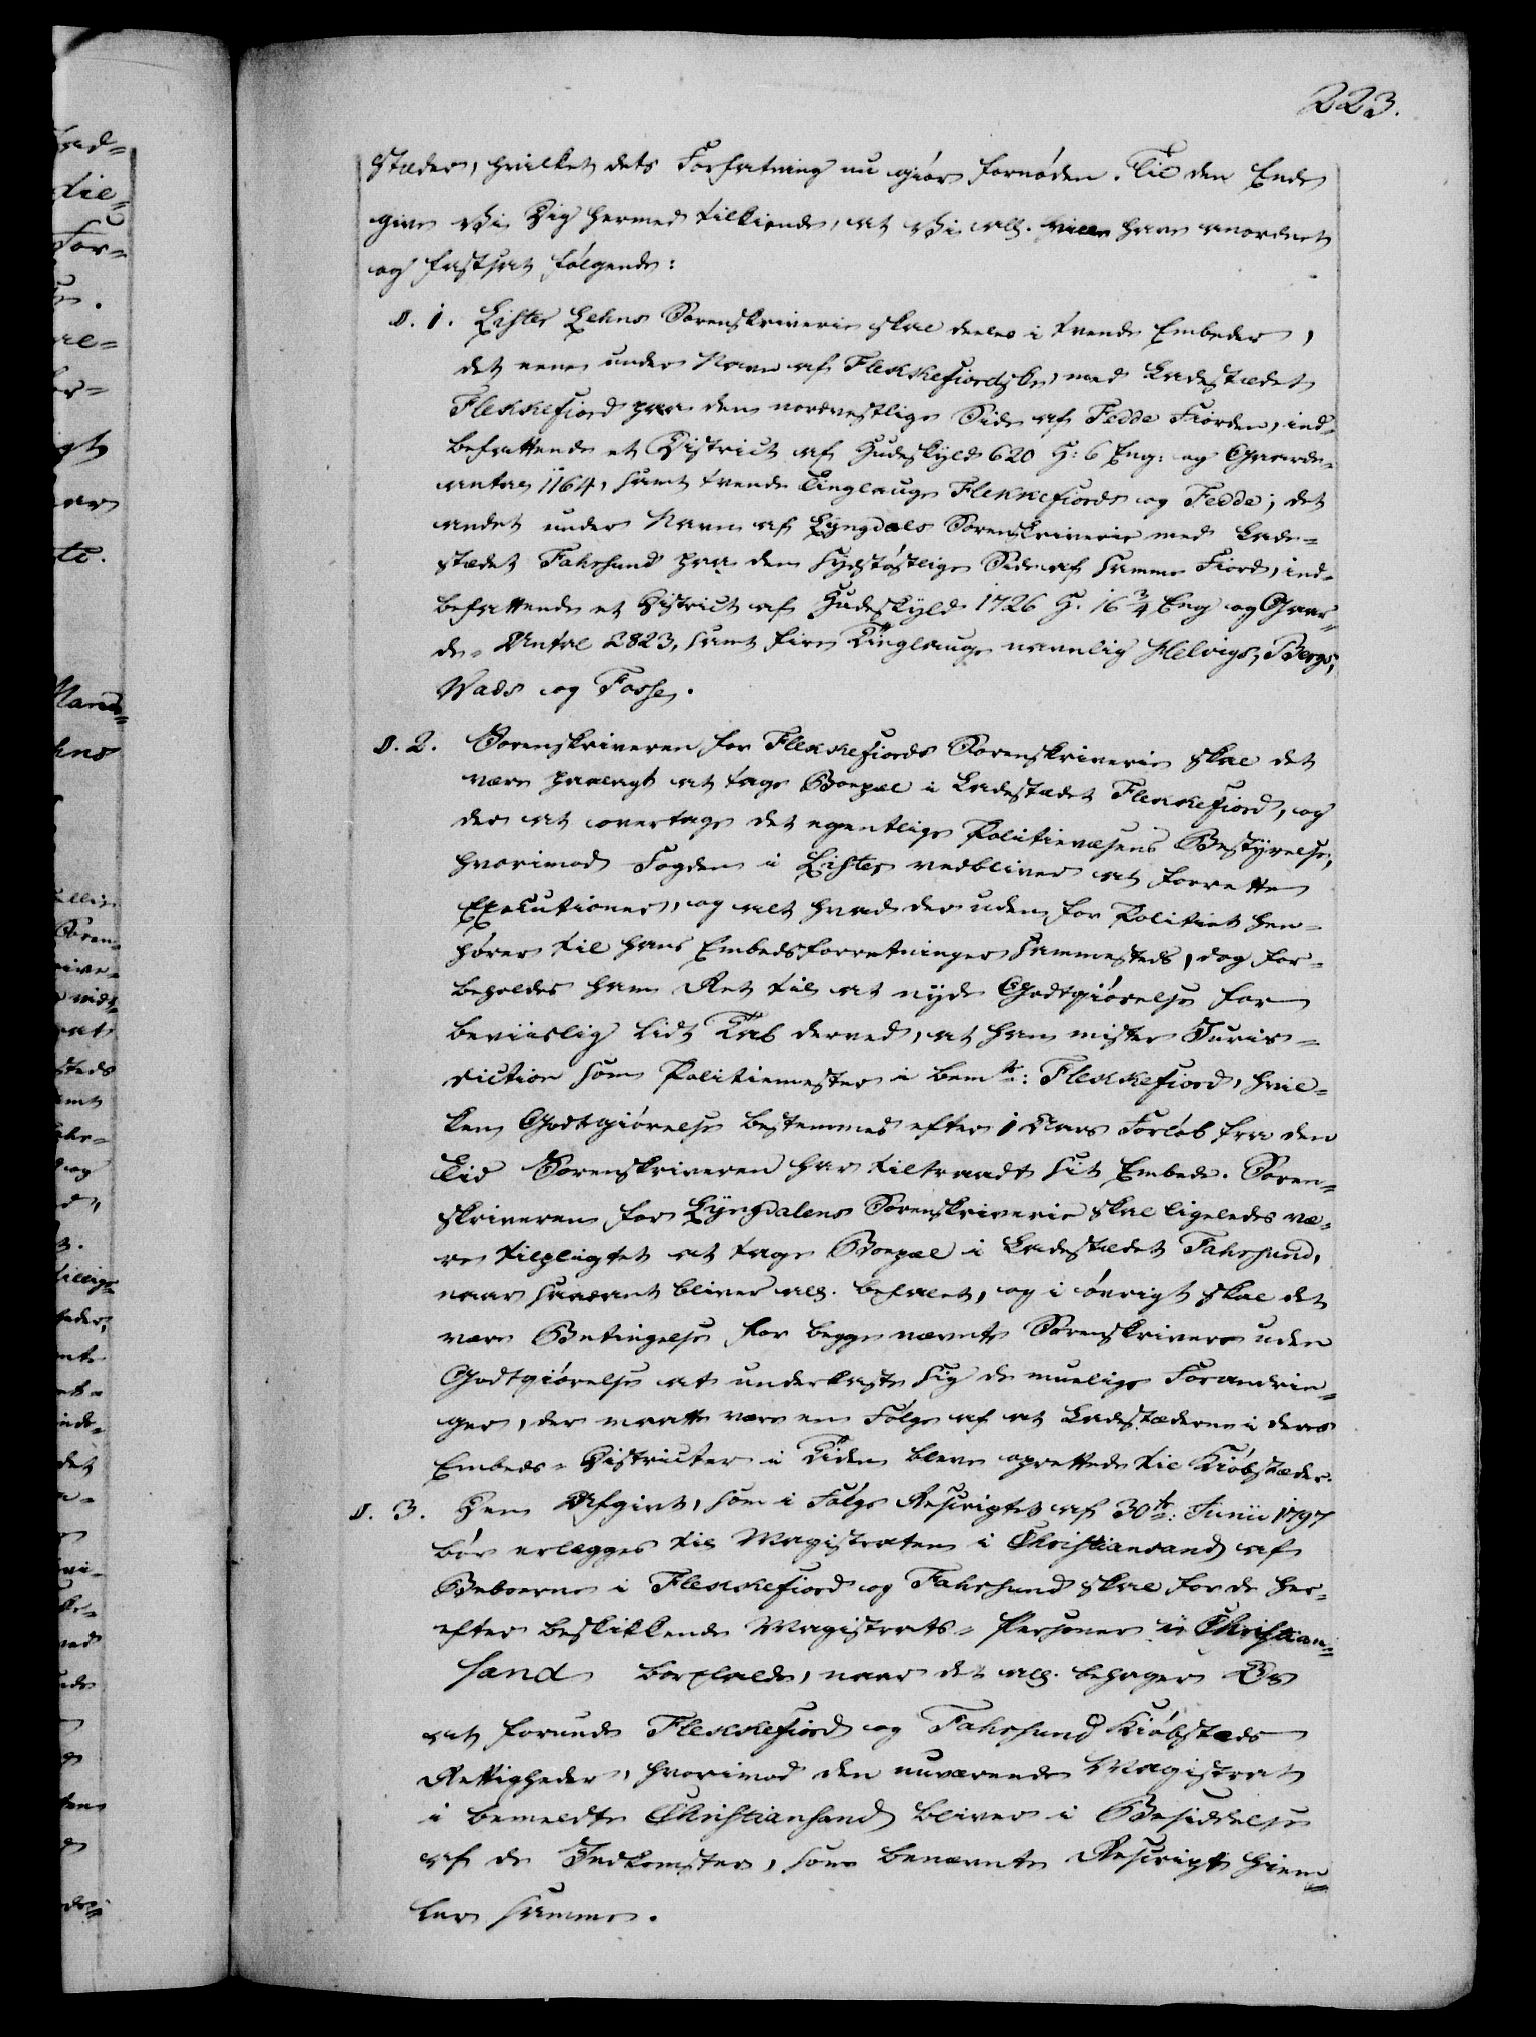 223.
stæder, hvilket dets Forfatning nu giør fornøden. Til den Ende
give Vi Dig hermed tilkiende, at Vi all. ville have anordnet
og fastsat følgende:
§. 1. Lister Lehns Sorenskriverie skal deeles i tvende Embeder,
det eene under Navn af Flekkefiords, med Ladestædet
Flekkefiord paa den nordvestlige Side af Fedde Fiorden, ind-
befattende et District af Hudeskyld 620 H: 6 Eng: og Gaarde-
antal 1164, samt tvende Tinglauge Flekkefiords og Fedde; det
andet under Navn af Lyngdals Sorenskriverie med Lade-
stædet Fahrsund paa den sydostlige Side af samme Fiord, ind-
befattende et District af Hudeskyld 1726 H. 16 3/4 Eng og Gaar-
de-Antal 2823, samt fire Tinglauge navnlig Helvigs, Bergs,
Vads og Fosse.
§. 2. Sorenskriveren for Flekkefiords Sorenskriverie skal det
være paalagt at tage Boepæl i Ladestædet Flekkefiord, og
der at overtage det egentlige Politievæsens Bestyrelse,
hvorimod Fogden i Lister vedbliver at forrette
Executioner, og alt hvad der uden for Politiet hen-
hører til hans Embedsforretninger sammesteds, dog for-
beholdes ham Ret til at nyde Godtgiørelse for
beviislig lidt Tab derved, at han mister Juris-
diction som Politiemester i bemte: Flekkefiord, hvil-
ken Godtgiørelse bestemmes efter 1 Aars Forløb fra den
Tid Sorenskriveren har tiltraadt sit Embede. Soren-
skriveren for Lyngdalens Sorenskriverie skal ligeledes væ-
re tilpligtet at tage Boepæl i Ladestædet Fahrsund,
naar saadant bliver all. befalet, og i øvrigt skal det
være Betingelse for begge nævnte Sorenskrivere uden
Godtgiørelse at underkaste sig de muelige Forandrin-
ger, der maatte være en Følge af at Ladestæderne i deres
Embeds-Districter i Tiden bleve oprettede til Kiøbstæder.
§. 3. Den Afgivt, som i Følge Rescriptet af 30te: Junii 1797
bør erlægges til Magistraten i Christiansand af
Beboerne i Flekkefiord og Fahrsund skal for de her-
efter beskikkende Magistrats-Personer i Christian-
sand bortfalde, naar det all. behager Os
at forunde Flekkefiord og Fahrsund Kiøbstæds
Rettigheder, hvorimod den nuværende Magistrat
i bemeldte Christiansand bliver i Besiddelse
af de Indkomster, som benævnte Rescript hiem-
ler samme.